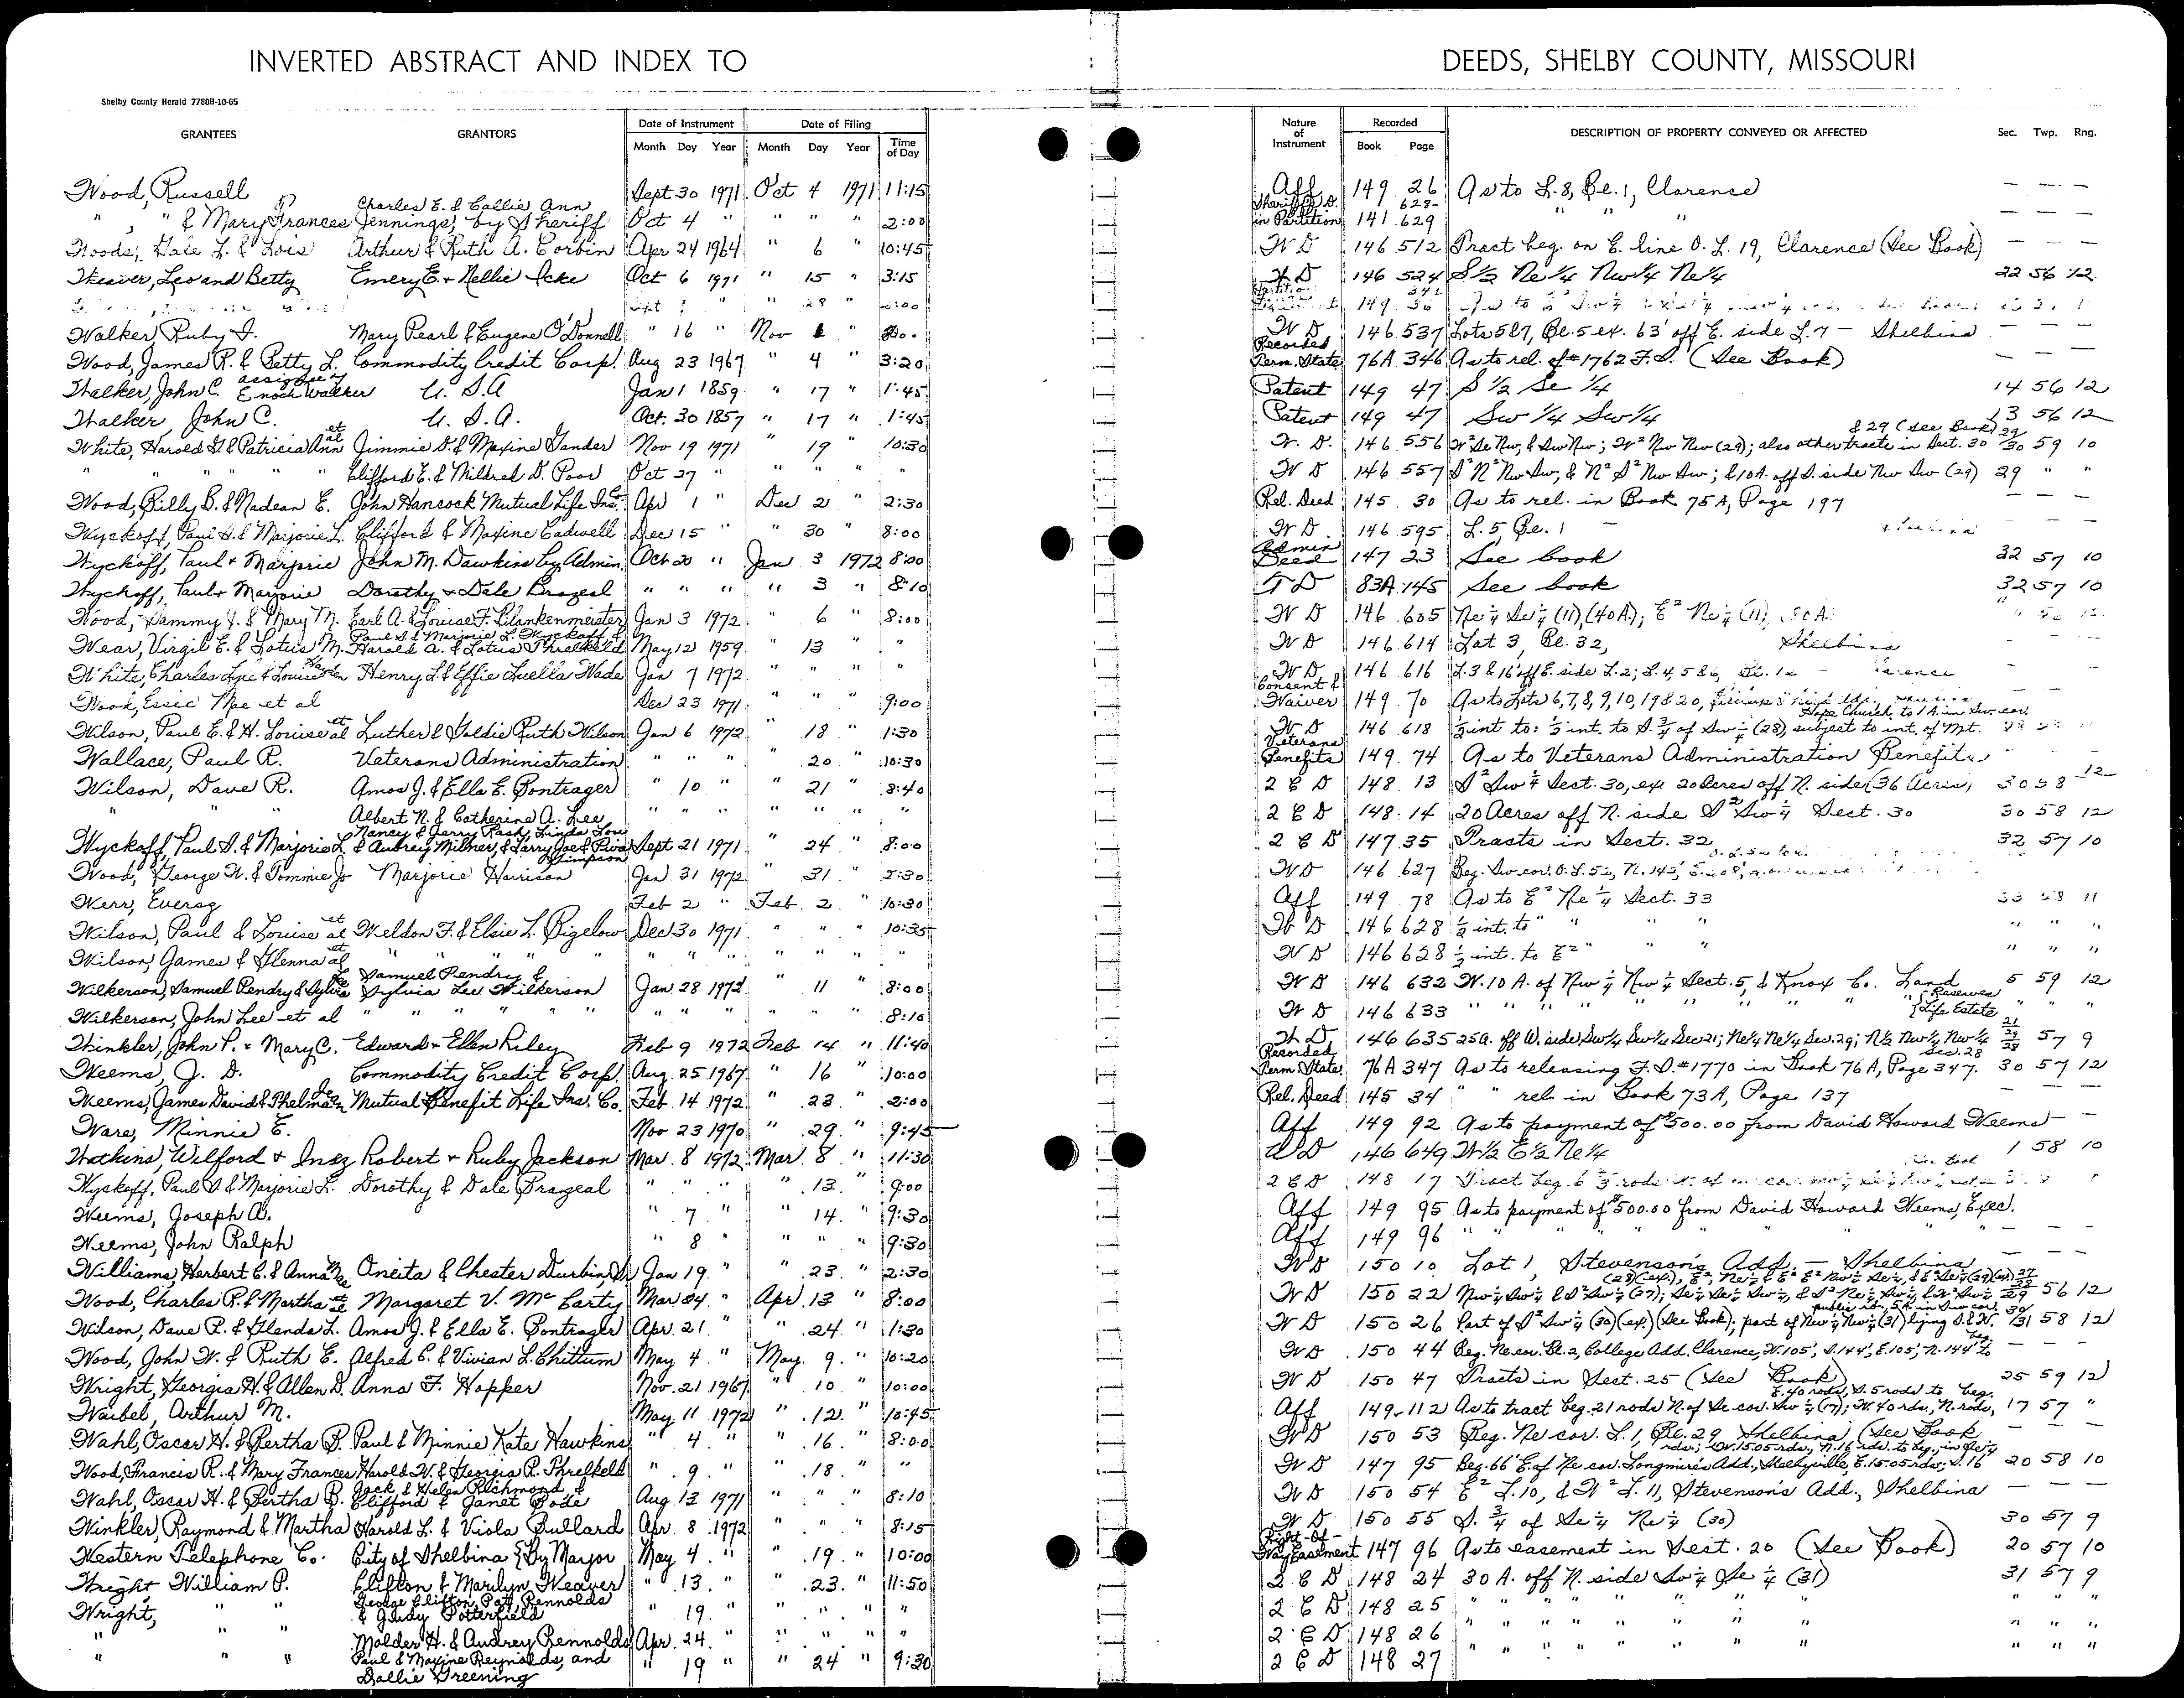 INVERTED ABSTRACT AND INDEX TO DEEDS, SHELBY COUNTY, MISSOURI
Shelby County Herald 7780B-10-65
GRANTEES GRANTORS Date of Instrument Month Day Year Date of Filing Month Day Year Time of Day Nature of Instrument Recorded Book Page DESCRIPTION OF PROPERTY CONVEYED OR AFFECTED Sec. Twp. Rng.
Wood, Russell Sept 30 1971 Oct 4 1971 11:15 Aff 149 26 As to L. 8, Bl. 1, Clarence — — —
" " & Mary Frances Charles E. & Callie Ann Jennings, by Sheriff Oct 4 " " " " 2:00 Sheriff's D. in Partition 141 628-629 " " " — — —
Woods, Gale L. & Lois Arthur & Ruth A. Corbin Apr 24 1964 " 6 " 10:45 W D 146 512 Tract beg. on E. line O. L. 19, Clarence (See Book) — — —
Weaver, Leo and Betty Emery E. & Nellie Icke Oct 6 1971 " 15 " 3:15 W D 146 524 S½ Ne¼ Nw¼ Ne¼ 22 56 12
Sept " " 28 " 149 As to
Walker, Ruby I. Mary Pearl & Eugene O'Donnell " 16 " Nov " W D 146 537 Lots 5&7, Bl. 5 ex. 63' off E. side L. 7 — Shelbina — — —
Wood, James R. & Betty L. Commodity Credit Corp. Aug 23 1967 " 4 " 3:20 Recorded Perm. State. 76A 346 As to rel. of #1762 F.S. (See Book) — — —
Walker, John C. assignee of Enoch Walker U. S. A Jan 1 1859 " 17 " 1:45 Patent 149 47 S ½ Se ¼ 14 56 12
Walker, John C. U. S. A. Oct. 30 1857 " 17 " 1:45 Patent 149 47 Sw ¼ Sw ¼ 13 56 12
White, Harold G. & Patricia Ann et al Jimmie D. & Maxine Gander Nov 19 1971 " 19 " 10:30 W. D. 146 556 W² Se Nw, & Sw Nw; W² Nw Nw (29); also other tracts in Sect. 30 & 29 (See Book) 29 30 59 10
" " " " " Clifford E. & Mildred D. Poor Oct 27 " " " " " W D 146 557 S² N² Nw Sw, & N² S² Nw Sw; & 10 A. off S. side Nw Sw (29) 29 " "
Wood, Billy B. & Nadean E. John Hancock Mutual Life Ins. Co. Apr 1 " Dec 2 " 2:30 Rel. Deed 145 30 As to rel. in Book 75A, Page 197 — — —
Wyckoff, Paul S. & Marjorie L. Clifford & Maxine Cadwell Dec 15 " " 30 " 8:00 W D 146 595 L. 5, Bl. 1 — — — —
Wyckoff, Paul & Marjorie John M. Dawkins by Admin. Oct 20 " Jan 3 1972 8:00 Admin Deed 147 23 See book 32 57 10
Wyckoff, Paul & Marjorie Dorothy & Dale Brazeal " " " " 3 " 8:10 T D 83A 145 See book 32 57 10
Wood, Sammy J. & Mary M. Earl A. & Louise F. Blankenmeister Jan 3 1972 " 6 " 8:00 W D 146 605 Ne¼ Se¼ (11) (40A); E² Ne¼ (11)
Wear, Virgil E. & Lotus M. Paul S. & Marjorie L. Wyckoff & Harold A. & Lotus Threlkeld May 12 1959 " 13 " W D 146 614 Lot 3, Bl. 32, Shelbina
White, Charles Lyle & Louise Henry L. & Effie Luella Wade Jan 7 1972 " " " " W D 146 616 L. 3 & 16' off E. side L. 2; L. 4, 5 & 6
Wood, Essie Mae et al Dec 23 1971 " " " 9:00 Consent & Waiver 149 70 As to Lots 6, 7, 8, 9, 10, 19 & 20,
Wilson, Paul E. & H. Louise et al Luther & Goldie Ruth Wilson Jan 6 1972 " 18 " 1:30 W D 146 618 ½ int. to: ½ int. to S. ¾ of Sw¼ (28), subject to int. of Mt. Hope Church, to 1 A. in Sw. cor.
Wallace, Paul R. Veterans Administration " " " " 20 " 10:30 Veterans Benefits 149 74 As to Veterans Administration Benefits — — —
Wilson, Dave R. Amos J. & Ella E. Bontrager " 10 " " 21 " 8:40 2 E D 148 13 S² Sw¼ Sect. 30, ex. 20 acres off N. side (36 Acres) 30 58 12
" " Albert N. & Catherine A. Lee " " " " " " " 2 E D 148 14 20 Acres off N. side S² Sw¼ Sect. 30 30 58 12
Wyckoff, Paul S. & Marjorie L. Nancy & Jerry Rash, Linda Lou & Aubrey Milner, & Larry Joe & Simpson Sept 21 1971 " 24 " 8:00 2 E D 147 35 Tracts in Sect. 32 32 57 10
Wood, George W. & Tommie Jo Marjorie Harrison Jan 31 1972 " 31 " W D 146 627 Beg. Sw cor. O. L. 52, N. 145',
Werr, Everay Feb 2 " Feb. 2 " 10:30 Aff 149 78 As to E² Ne¼ Sect. 33 33 58 11
Wilson, Paul & Louise et al Weldon F. & Elsie L. Bigelow Dec 30 1971 " " " 10:35 W D 146 628 ½ int. to " " " " " "
Wilson, James & Glenna et al " " " " " " " " " " " W D 146 628 ½ int. to E² " " " " " "
Wilkerson, Samuel Pendry & Sylvia Lee Samuel Pendry & Sylvia Lee Wilkerson Jan 28 1972 " 11 " 8:00 W D 146 632 W. 10 A. of Nw¼ Nw¼ Sect. 5, & Knox Co. Land 5 59 12
Wilkerson, John Lee et al " " " " " " " " " " 8:10 W D 146 633 " " " " " " " {Reserves Life Estate " " "
Winkler, John P. & Mary C. Edward & Ellen Riley Feb 9 1972 Feb 14 " 11:40 W D 146 635 25a. off W. side Sw¼ Sw¼ Sec 21; Ne¼ Ne¼ Sec. 29; N½ Nw¼ Nw¼ Sec. 28 21 29 28 57 9
Weems, J. D. Commodity Credit Corp. Aug. 25 1967 " 16 " 10:00 Recorded Perm. State. 76A 347 As to releasing F.S. #1770 in Book 76A, Page 347. 30 57 12
Weems, James David & Thelma Mutual Benefit Life Ins. Co. Feb. 14 1972 " 23 " 2:00 Rel. Deed 145 34 " " rel. in Book 73A, Page 137 — — —
Ware, Minnie E. Nov 23 1970 " 29 " 9:45 Aff 149 92 As to payment of $500.00 from David Howard Weems — —
Watkins, Wilford & Inez Robert & Ruby Jackson Mar. 8 1972 Mar. 8 " 11:30 W D 146 649 W½ E½ Ne¼ 1 58 10
Wyckoff, Paul S. & Marjorie L. Dorothy & Dale Brazeal " " " " 13 " 9:00 2 E D 148 17 Tract beg. 6 rods See Book
Weems, Joseph A. " 7 " " 14 " 9:30 Aff 149 95 As to payment of $500.00 from David Howard Weems, Exec.
Weems, John Ralph " 8 " " " " 9:30 Aff 149 96 " " " " " " — — —
Williams, Herbert C. & Anna Mae Oneita & Chester Durbin, Jr Jan 19 " " 23 " 2:30 W D 150 10 Lot 1, Stevenson's Add. — Shelbina — — —
Wood, Charles R. & Martha et al Margaret V. McCarty Mar 24 " Apr. 13 " 8:00 W D 150 22 56 12
Wilson, Dave R. & Glenda L. Amos J. & Ella E. Bontrager Apr. 21 " " 24 " 1:30 W D 150 26 Part of S² Sw¼ (30) (ex.) (See Book); part of Nw¼ Nw¼ (31) lying S. & W. public rd., 5A in Sw cor. 30 31 58 12
Wood, John W. & Ruth E. Alfred C. & Vivian L. Chittum May 4 " May 9 " 10:20 W D 150 44 Beg. Ne cor. Bl. 2, College Add. Clarence, W. 105', S. 144', E. 105', N. 144' to beg. — — —
Wright, Georgia H. & Allen D. Anna F. Hopper Nov. 21 1967 " 10 " 10:00 W D 150 47 Tracts in Sect. 25 (See Book) 25 59 12
Waibel, Arthur M. May 11 1972 " 12 " 10:45 Aff 149 112 As to tract beg. 21 rods N. of Se cor. Sw¼ (17); W. 40 rds., N. rods, E. 40 rods, S. 5 rods to beg. 17 57 "
Wahl, Oscar H. & Bertha B. Paul & Minnie Kate Hawkins " 4 " " 16 " 8:00 W D 150 53 Beg. Ne cor. L. 1, Bl. 29, Shelbina (See Book — — —
Wood, Francis R. & Mary Frances Harold W. & Georgia R. Threlkeld " 9 " " 18 " " W D 147 95 Beg. 66' E. of Ne cor. Longmire's Add., Shelbyville, E. 15.05 rds.; S. 16 rds.; W. 15.05 rds., N. 16 rds. to beg., in 20 58 10
Wahl, Oscar H. & Bertha B. Jack & Helen Richmond & Clifford & Janet Bode Aug 13 1971 " " " 8:10 W D 150 54 E² L. 10, & W² L. 11, Stevenson's Add., Shelbina — — —
Winkler, Raymond & Martha Harold L. & Viola Bullard Apr. 8 1972 " " " 8:15 W D 150 55 S. ¾ of Se¼ Ne¼ (30) 30 57 9
Western Telephone Co. City of Shelbina {By Mayor May 4 " " 19 " 10:00 Right-Of-Way Easement 147 96 As to easement in Sect. 20 (See Book) 20 57 10
Wright William P. Clifton & Marilyn Weaver " 13 " " 23 " 11:50 2 E D 148 24 30 A. off N. side Sw¼ Se¼ (31) 31 57 9
Wright, " " George Clifton, Patt Rennolds & Judy Potterfield " 19 " " " " " 2 E D 148 25 " " " " " " " " "
" " " Molder H. & Audrey Rennolds Apr. 24 " " " " " 2 E D 148 26 " " " " " " " " "
" " " Paul & Maxine Reynolds, and Dallie Greening " 19 " 24 " 9:30 2 E D 148 27 " " " " " " " " "